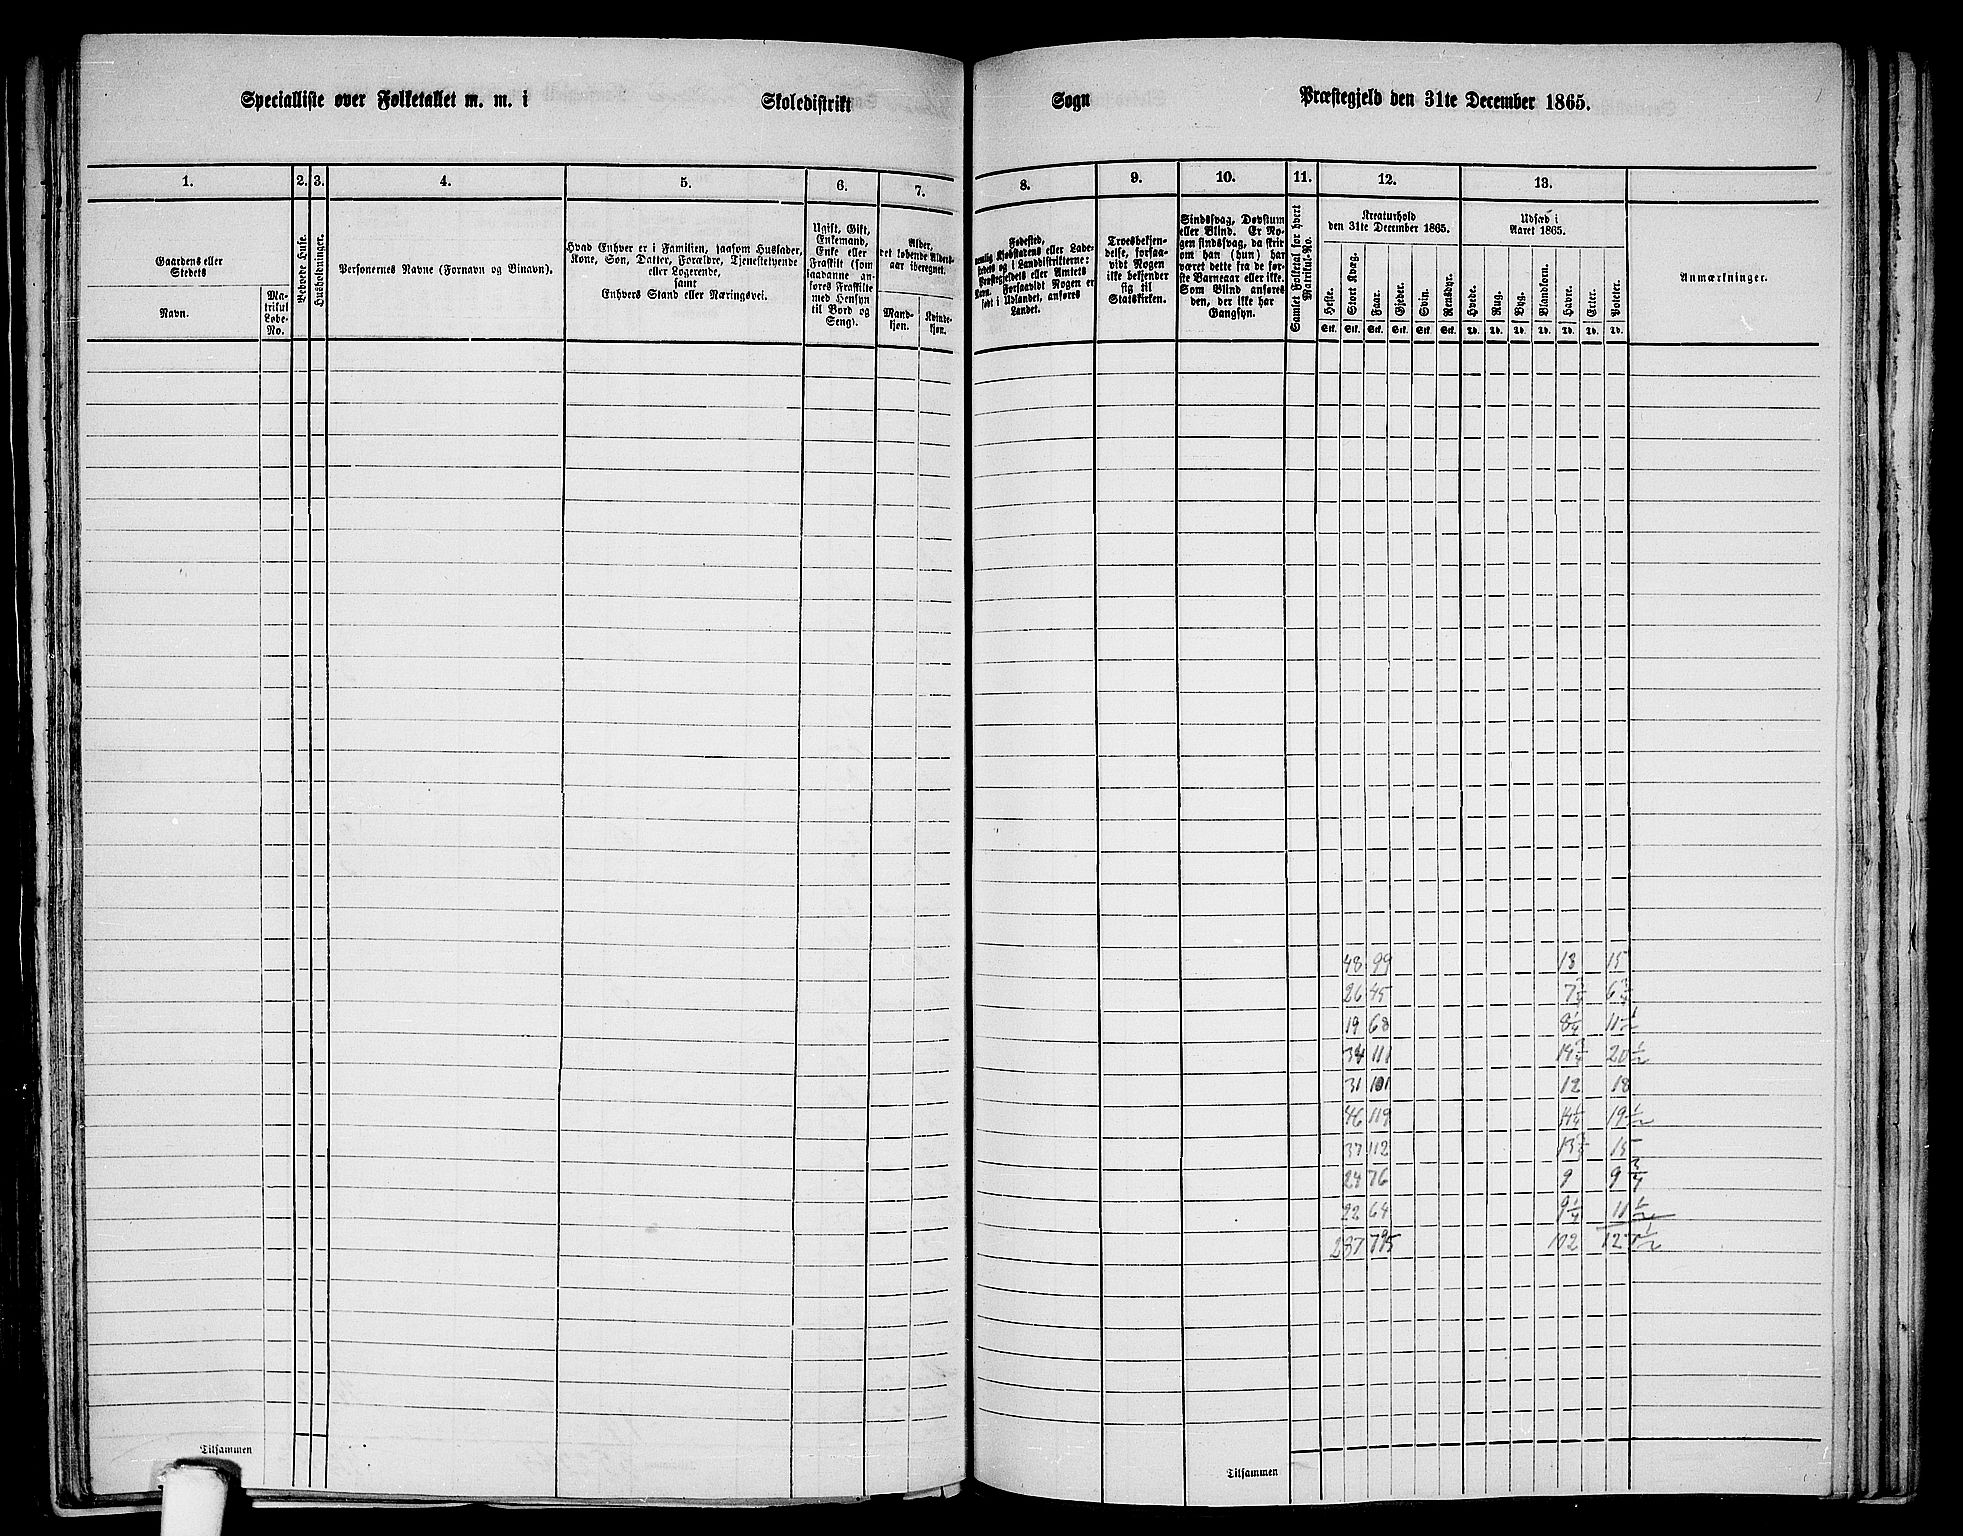 Specialliste over Folketallet m. m. i Skoledistrikt Sogn Præstegjeld den 31te December 1865.
1. 2. 3. 4. 5. 6. 7. 8. 9. 10. 11. 12. 13.
Gaardens eller
Stedets
Navn.
Ma-
trikul
Løbe-
No.
Beboede Huse.
Husholdninger.
Personernes Navne (Fornavn og Binavn).
Hvad Enhver er i Familien, saasom Husfader,
Kone, Søn, Datter, Forældre, Tjenestetyende
eller Logerende,
samt
Enhvers Stand eller Næringsvei.
Ugift, Gift,
Enkemand,
Enke eller
Fraskilt (som
saadanne an-
føres Fraskilte
med Hensyn
til Bord og
Seng).
Alder,
det løbende Alders-
aar iberegnet.
Mand-
kjøn.
Kvinde-
kjøn.
Fødested,
nemlig Kjøbstadens eller Lade-
stedets og i Landdistrikterne:
Præstegjeldets eller Amtets
Navn. Forsaavidt Nogen er
født i Udlandet, anføres
Landet.
Troesbekjen-
delse, forsaa-
vidt Nogen
ikke bekjender
sig til
Statskirken.
Sindssvag, Døvstum
eller Blind. Er No-
gen sindssvag, da skrives
om han (hun) har
været dette fra de før-
ste Barneaar eller ikke.
Som Blind anføres
den, der ikke har
Gangsyn.
Samlet Folketal for hvert
Matrikul-No.
Kreaturhold
den 31te December 1865.
Heste.
Stort Kvæg.
Faar.
Gjeder.
Svin.
Rensdyr.
Stk. Stk. Stk. Stk. Stk. Stk.
Udsæd i
Aaret 1865.
Hvede.
Rug.
Byg.
Blandkorn.
Havre.
Erter.
Poteter.
Td. Td. Td. Td. Td. Td. Td.
Anmærkninger.
48 99 13 15
26 45
19 68 8 1/4 11 1/2
34 111 14 3/4 20 1/2
31 101 12 18
46 119 14 1/4 19 1/2
37 112 15
24 76 9 9 3/4
22 64 9 1/4 11 1/2
287 795 102 127 1/2
Tilsammen
Tilsammen